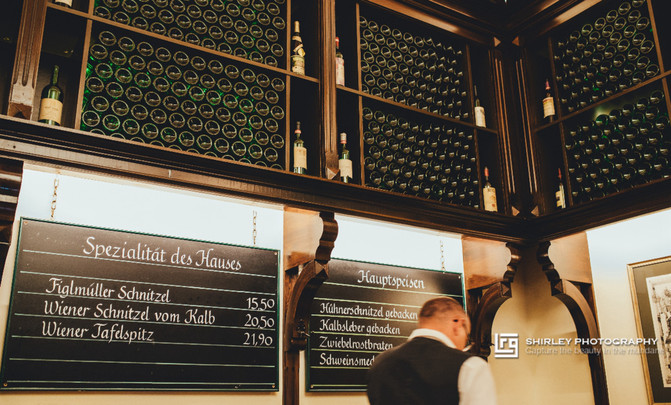 Spezialität des Hauses
Figlmüller Schnitzel 15,50
Wiener Schnitzel vom Kalb 20,50
Wiener Tafelspitz 21,90
Hauptspeisen
Hühnerschnitzel gebacken
Kalbsleber gebacken
Zwiebelrostbraten
Schweinsmed
SHIRLEY PHOTOGRAPHY
Capture the beauty in the mundane